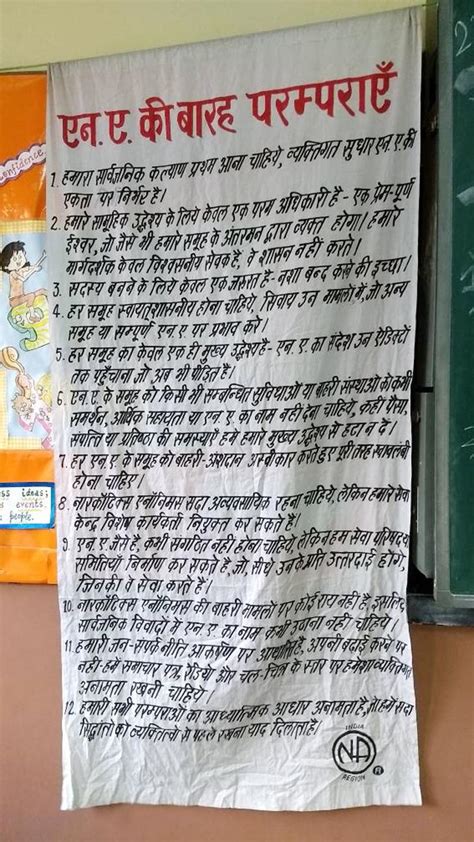 एन. ए. की बारह परम्पराएँ
1. हमारा सार्वजनिक कल्याण प्रथम आना चाहिये, व्यक्तिगत सुधार एन. ए. की
एकता पर निर्भर है।
2. हमारे सामूहिक उद्देश्य के लिये केवल एक परम अधिकारी है - एक प्रेम-पूर्ण
ईश्वर, जो जैसे भी हमारे समूह के अंतरमन द्वारा व्यक्त होगा। हमारे
मार्गदर्शक केवल विश्वसनीय सेवक है, वे शासन नहीं करते।
3. सदस्य बनने के लिये केवल एक जरूरत है - नशा बन्द करने की इच्छा।
4. हर समूह स्वायत्तशासनीय होना चाहिये, सिवाय उन मामलो में, जो अन्य
समूह या सम्पूर्ण एन. ए पर प्रभाव करे।
5. हर समूह का केवल एक ही मुख्य उद्देश्य है - एन. ए. का संदेश उन ऐडिक्टों
तक पहुँचाना जो अब भी पीड़ित है।
6. एन. ए. के समूह को किसी भी सम्बन्धित सुविधाओं या बाहरी संस्थाओ को कभी
समर्थन, आर्थिक सहायता या एन. ए. का नाम नही देना चाहिये, कही पैसा,
संपत्ति या प्रतिष्ठा की समस्याएँ हमे हमारे मुख्य उद्देश्य से हटा न दें।
7. हर एन. ए. के समूह को बाहरी अंशदान अस्वीकार करते हुए पूरी तरह स्वावलंबी
होना चाहिए।
8. नारकौटिक्स एनॉनिमस सदा अव्यवसायिक रहना चाहिये, लेकिन हमारे सेवा
केन्द्र विशेष कार्यकर्ता नियुक्त कर सकते है।
9. एन. ए. जैसे है, कभी संगठित नहीं होना चाहिये, लेकिन हम सेवा परिषद या
समितियाँ निर्माण कर सकते है, जो, सीधे उनके प्रति उत्तरदाई होंगे,
जिनकी वे सेवा करते है।
10. नारकौटिक्स एनॉनिमस की बाहरी मामलो पर कोई राय नहीं है, इसलिए
सार्वजनिक विवादों में एन. ए. का नाम कभी नहीं चाहिये।
11. हमारी जन-संपर्क नीति आकर्षण पर आधारित है, अपनी बढ़ाई करने पर
नही - हमें समाचार पत्र, रेडियो और चल-चित्र के स्तर पर हमेशा व्यक्तिगत
अनामता रखनी चाहिये
12. हमारी सभी परम्पराओं का आध्यात्मिक आधार अनामता है, जो हमें सदा
सिद्धांतो को व्यक्तित्वो से पहले रखना याद दिलाता है।
INDIA
NA
REGION
Confidence
ess ideas;
events.
people.